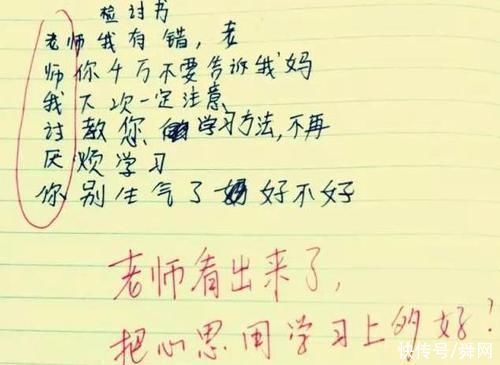 检讨书
老师我有错，老
师你千万不要告诉我妈
我下次一定注意
讨教您学习方法，不再
厌烦学习
你别生气了好不好
老师看出来了，
把心思用学习上的好！
快传号/舜网